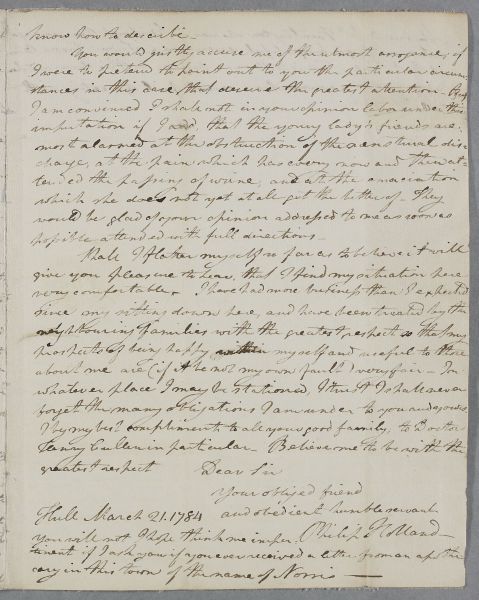 know how to describe.
You would justly accuse me of the utmost arrogance, if
I were to pretend to point out to you the particular circum
stances in this case, that deserve the greatest attention. But
I am convinced I shall not in your opinion labor under this
imputation if I add, that the young lady's friends are
most alarmed at the obstruction of the menstrual dis-
charge, at the pain which has every now and then at-
tended the passing of urine, and at the emaciation
which she does not yet at all get the better of. They
would be glad of your opinion addressed to me as soon as
possible attended with full directions.
Shall I flatter myself so far as to believe it will
give you pleasure to hear, that I find my situation here
very comfortable. I have had more business than I expected
since my sitting down here, and have been treated by the
neighbouring families with the greatest respect so that my
prospects of being happy within myself and useful to those
about me are (if it be not my own fault) very fair. In
whatever place I may be stationed, I trust I shall never
forget the many obligations I am under to you and yours
my best compliments to all your good family, to Doctor
Henry Cullen in particular. Believe me to be with the
greatest respect Dear Sir
Your obliged friend
and obedient humble servant
Hull March 21. 1784 Philip Holland
You will not I hope think me imper-
tinent if I ask you if you ever received a letter from an apothe
cary in this town of the name of Norris